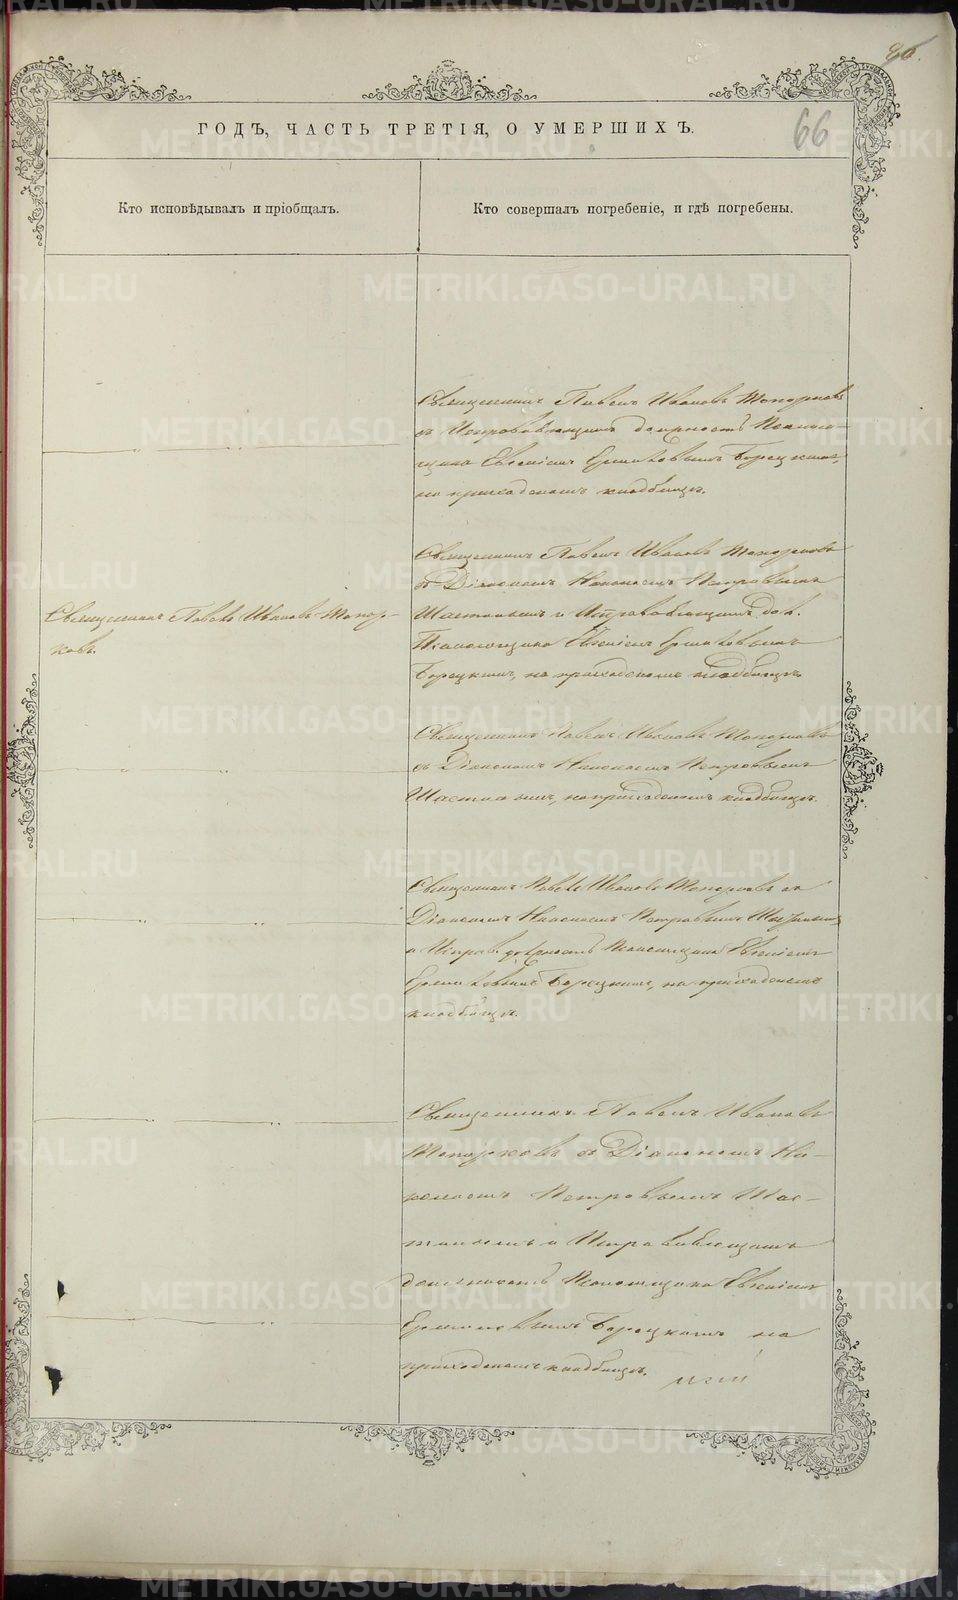 86.
66
ГОДЪ, ЧАСТЬ ТРЕТІЯ, О УМЕРШИХЪ.
Кто исповѣдывалъ и пріобщалъ.
Кто совершалъ погребеніе, и гдѣ погребены.
Священникъ Павелъ Ивановъ Топорковъ
съ Исправляющимъ должность Псалом-
щика Евгеніемъ Борецкимъ,
на приходскомъ кладбищѣ.
Священникъ Павелъ Ивановъ Топор-
ковъ.
Священникъ Павелъ Ивановъ Топорковъ
съ Діакономъ Петровымъ
и Исправляющимъ дол.
Псаломщика Евгеніемъ
Борецкимъ, на приходскомъ кладбищѣ.
Священникъ Павелъ Ивановъ Топорковъ
съ Діакономъ Петровымъ
на приходскомъ кладбищѣ.
Священникъ Павелъ Ивановъ Топорковъ съ
Діакономъ Петровымъ
и Исправ. должность Псаломщика Евгеніемъ
Борецкимъ, на приходскомъ
кладбищѣ.
Священникъ Павелъ Ивановъ
Топорковъ съ Діакономъ
Петровымъ
и Исправляющимъ
должность Псаломщика Евгеніемъ
Борецкимъ на
приходскомъ кладбищѣ.
METRIKI.GASO-URAL.RU